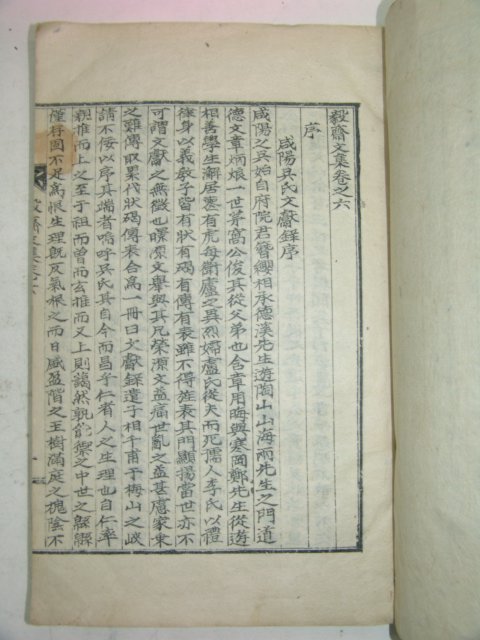 毅齋文集卷之六
序
咸陽吳氏文獻錄序
咸陽之吳始自府院君簪纓相承德溪先生遊陶山山海兩先生之門道
德文章炳烺一世茅窩公俊其從父弟也含章用晦與寒岡鄭先生從遊
相善學生澥居墓有虎每衛廬之異烈婦盧氏從夫而死孺人李氏以禮
律身以義敎子皆有狀有碣有傳有表雖不得㫌表其門顯揚當世亦不
可謂文獻之無徵也㬒源文擧與其兄榮源文益痛世亂之益甚慮家乘
之難傳取累代狀碣傳表合爲一冊曰文獻錄遣子相千謁于梅山之峽
請不佞以序其端者嗚呼吳氏其自今而昌乎仁者人之生理也自仁率
親推而上之至于祖而曾而玄推而又上則藹然孰能禦之中世之緜緜
僅存固不足爲恨生理旣反氣根之而日盛盈階之玉樹滿庭之槐陰不